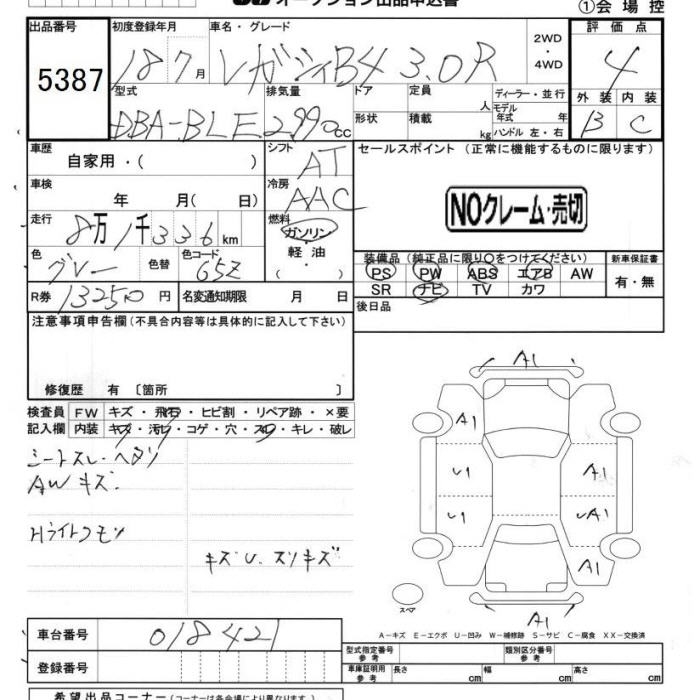 オークション出品申込書
①会場控
出品番号 初度登録年月 車名・グレード 評価点
5387 18 7月 レガシィB4 3.0R 2WD・4WD 4
型式 排気量 ドア 定員 人 ディーラー・並行 外装 内装
DBA-BLE 2990cc 形状 積載 kg モデル年式 年 ハンドル 左・右 B C
車歴 自家用・( ) シフト AT セールスポイント (正常に機能するものに限ります)
車検 年 月( 日) 冷房 AAC
NOクレーム・売切
走行 8万1千336km 燃料 ガソリン・軽油・( )
色 グレー 色替 色コード 65Z
装備品(純正品に限り○をつけてください) 新車保証書
PS PW ABS エアB AW 有・無
SR ナビ TV カワ
R券 13250円 名変通知期限 月 日
後日品
注意事項申告欄(不具合内容等は具体的に記入して下さい)
修復歴 有 〔箇所 〕
検査員 FW キズ・飛石・ヒビ割・リペア跡・×要
記入欄 内装 キズ・汚レ・コゲ・穴・スレ・キレ・破レ
シートスレ・ヘタリ
AWキズ
Hライトクモリ
キズU.スリキズ
A1
A1
U1 A1
U1 UA1
A1
スペア
A1
A－キズ E－エクボ U－凹み W－補修跡 S－サビ C－腐食 XX－交換済
車台番号 018421
型式指定番号 参考 類別区分番号 参考
登録番号
車庫証明用 参考 長さ cm 幅 cm 高さ cm
希望出品コーナー(コーナーは各会場により異なります。)